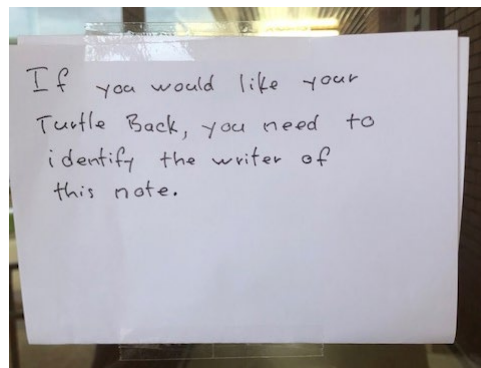 If you would like your
Turtle Back, you need to
identify the writer of
this note.